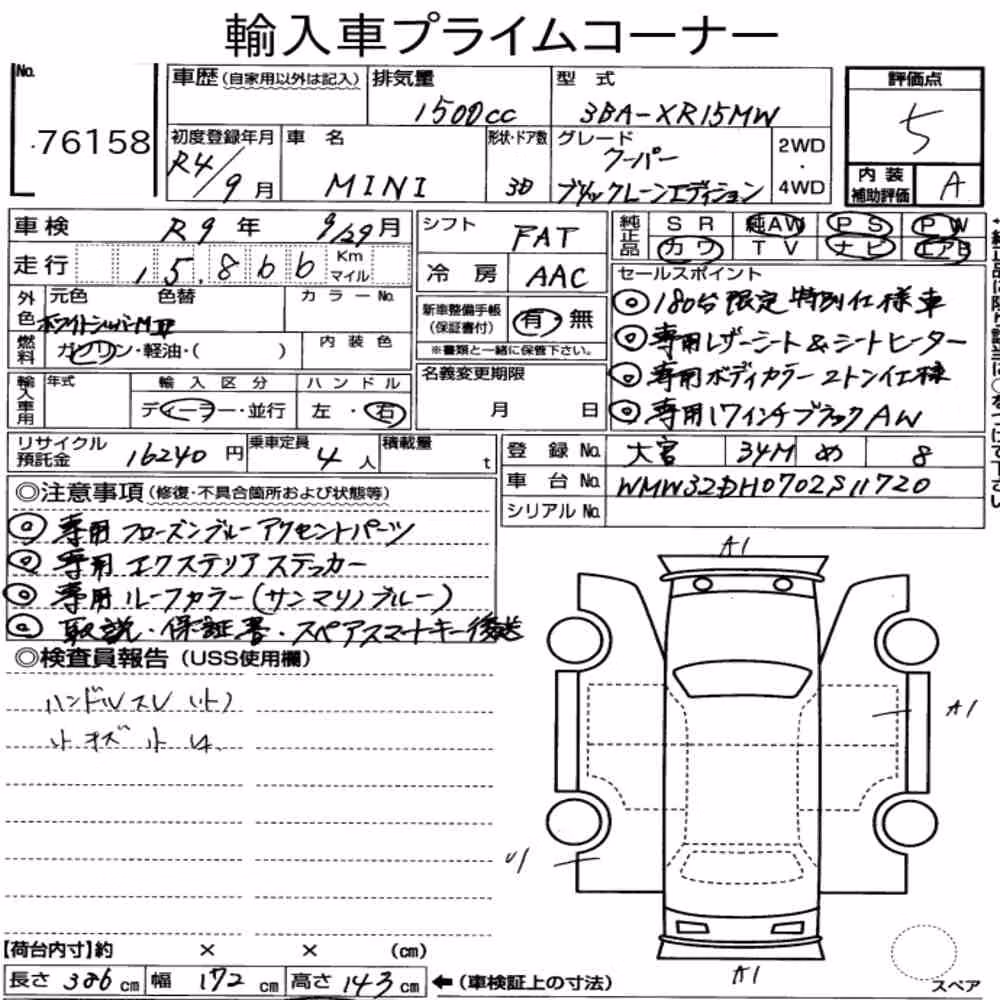 輸入車プライムコーナー
No. 76158
車歴 (自家用以外は記入)
排気量 1500cc
型式 3BA-XR15MW
評価点 5
初度登録年月 R4/9月
車名 MINI
形状・ドア数 3D
グレード クーパー
ブリックレーンエディション
2WD・4WD
内装補助評価 A
車検 R9年 9/29月
走行 15,866 Km マイル
シフト FAT
冷房 AAC
純正品 SR 純AW PS PW
カワ TV ナビ エアB
外色 元色 色替 カラーNo.
ホワイトシルバーM
燃料 ガソリン・軽油・( ) 内装色
新車整備手帳(保証書付) 有・無
※書類と一緒に保管下さい。
セールスポイント
◎180台限定特別仕様車
◎専用レザーシート&シートヒーター
◎専用ボディカラー2トン仕様
◎専用17インチブラックAW
輸入車用 年式 輸入区分 ディーラー・並行 ハンドル 左・右
名義変更期限 月 日
リサイクル預託金 16240円
乗車定員 4人
積載量 t
登録No. 大宮 34M め 8
車台No. WMW32DH0702S11720
シリアルNo.
◎注意事項(修復・不具合箇所および状態等)
◎専用フローズンブルーアクセントパーツ
◎専用エクステリアステッカー
◎専用ルーフカラー(サンマリノブルー)
◎取説・保証書・スペアスマートキー後送
◎検査員報告(USS使用欄)
ハンドルスレ
キズ
A1
A1
U1
A1
スペア
【荷台内寸】約 × × (cm)
長さ 386cm 幅 172cm 高さ 143cm ←(車検証上の寸法)